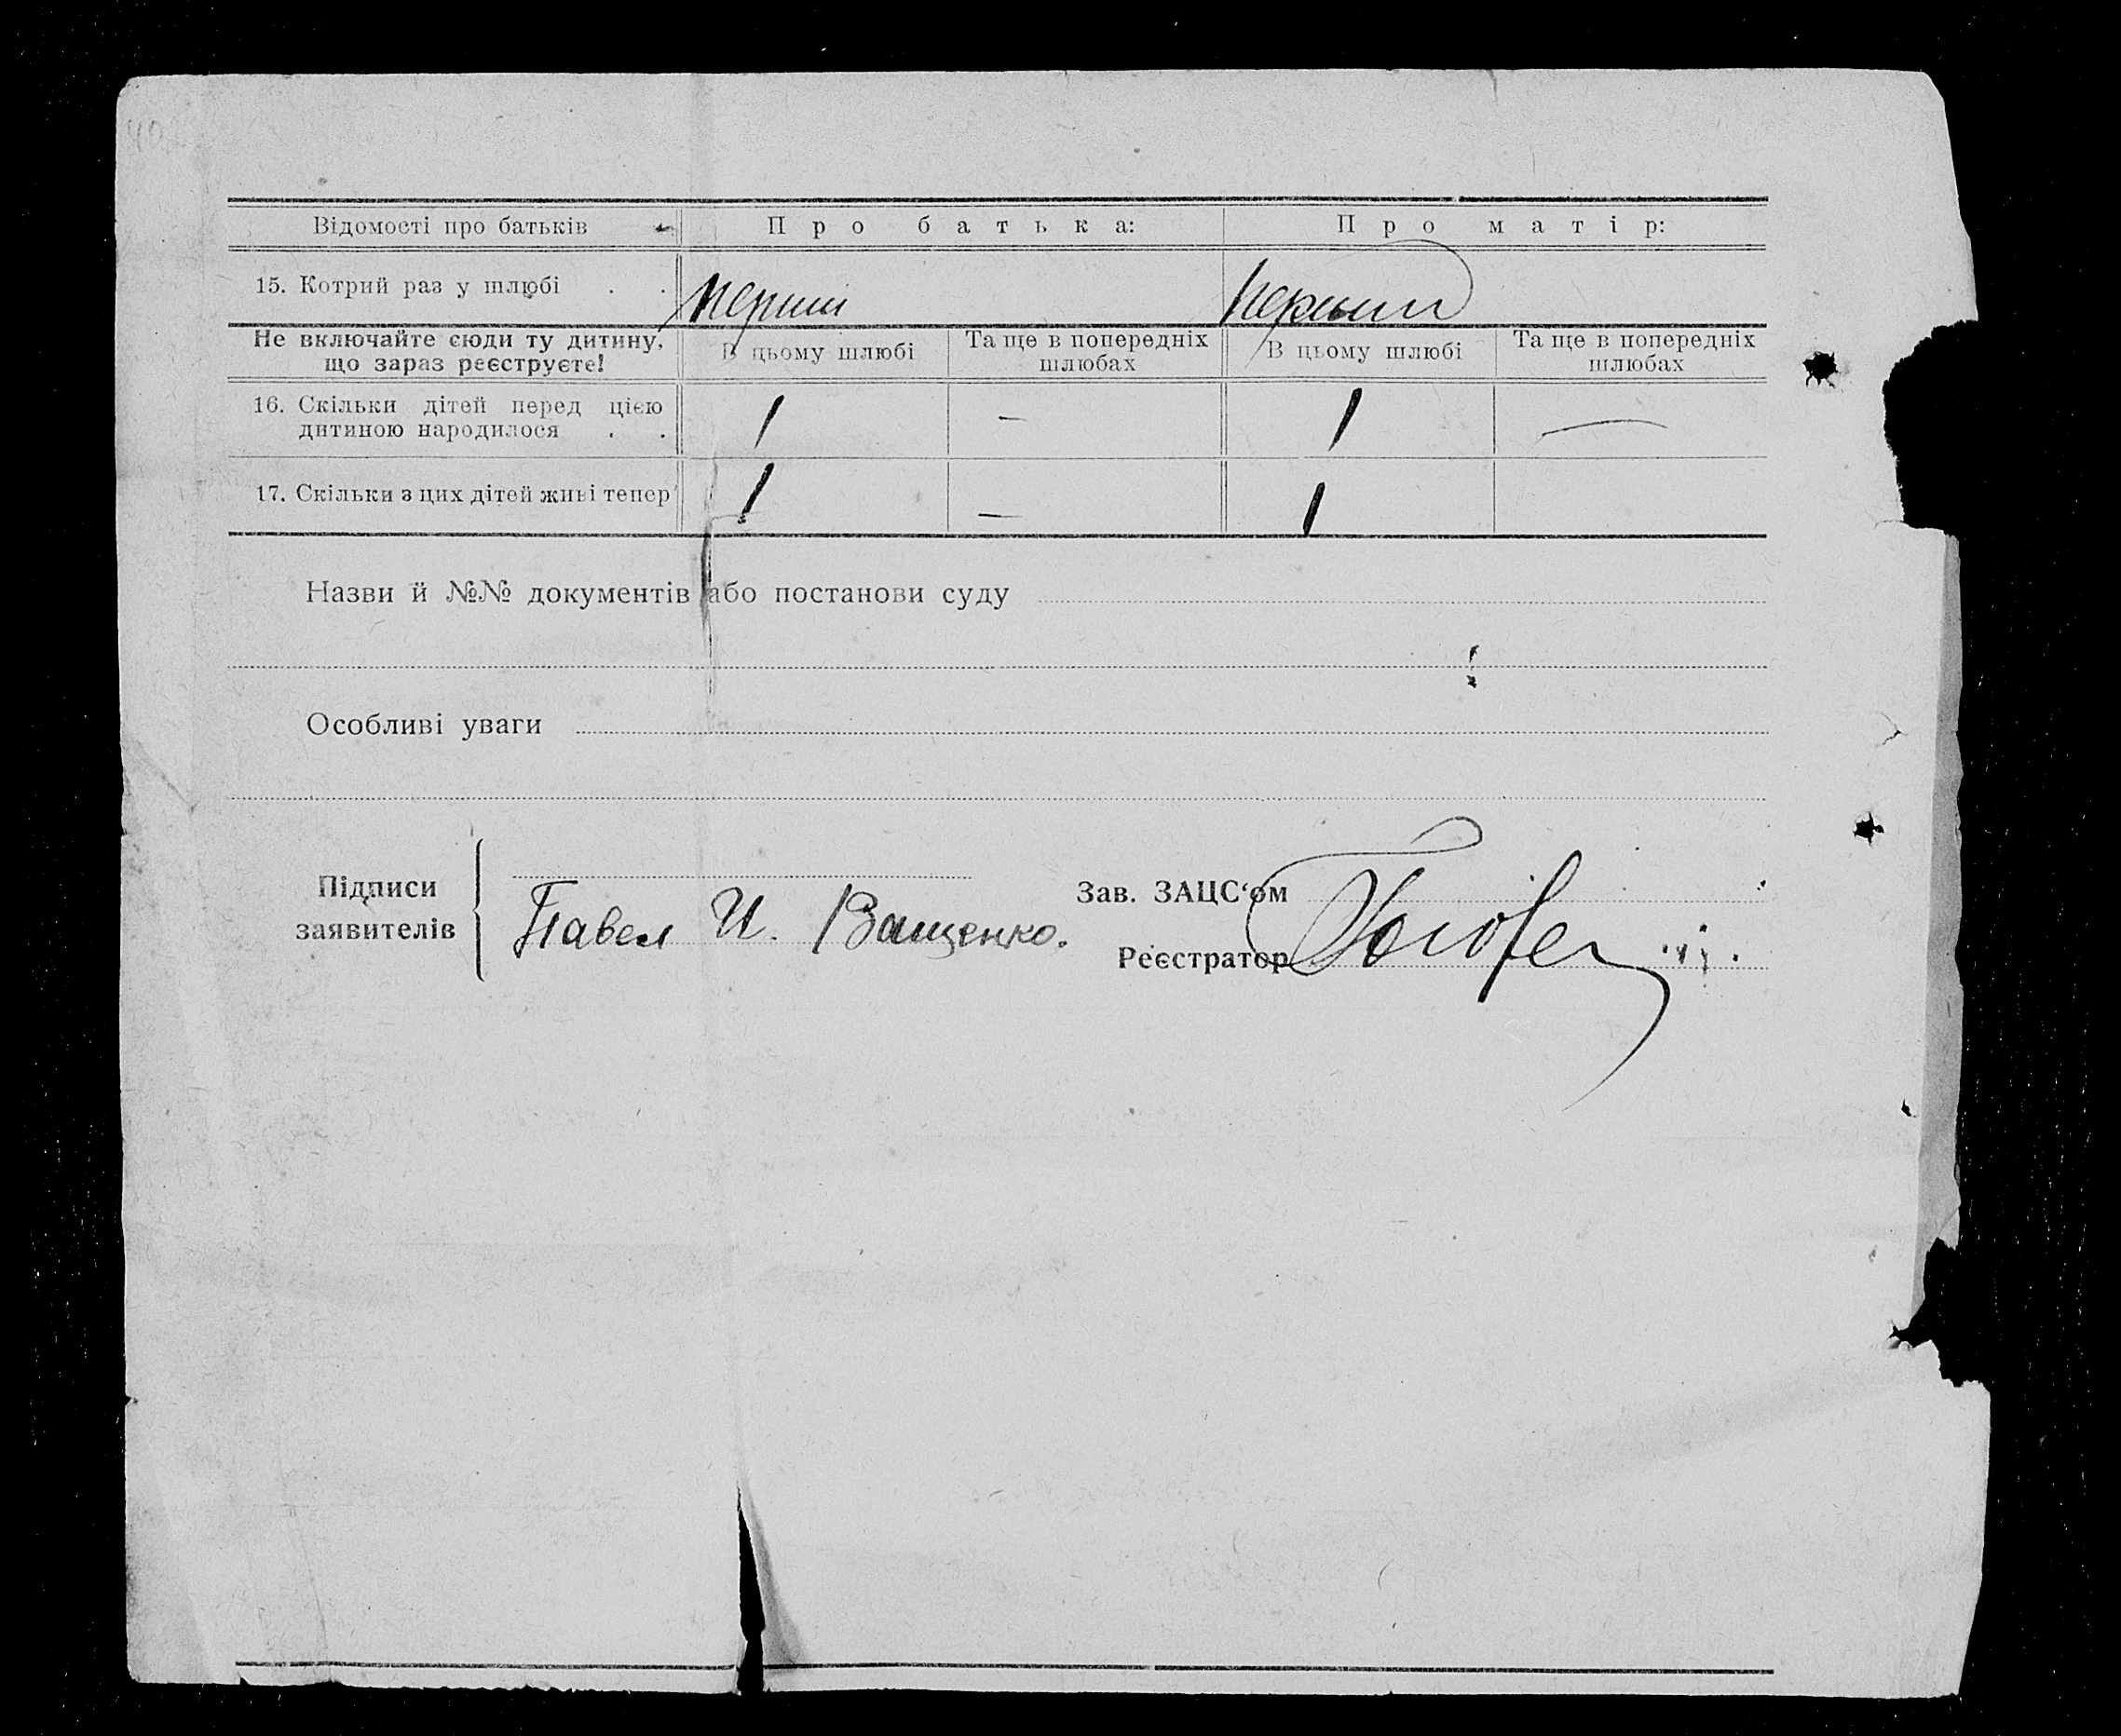 Відомості про батьків Про батька: Про матір:
15. Котрий раз у шлюбі . . перший перший
Не включайте сюди ту дитину, що зараз реєструєте!
В цьому шлюбі Та ще в попередніх шлюбах В цьому шлюбі Та ще в попередніх шлюбах
16. Скільки дітей перед цією
дитиною народилося . . 1 — 1 —
17. Скільки з цих дітей живі тепер 1 — 1
Назви й №№ документів або постанови суду
Особливі уваги
Підписи
заявителів
Павел И. Ващенко.
Зав. ЗАЦС‘ом
Реєстратор